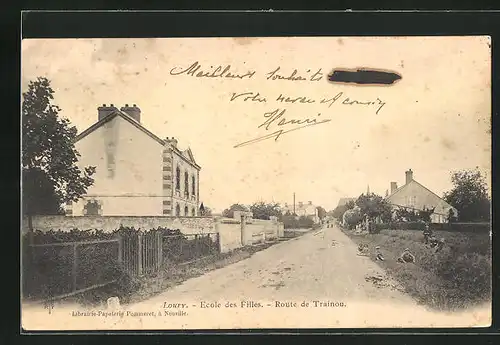 Meilleurs souhaits
Votre neveu et cousin
Henri
LOURY. - Ecole des Filles. - Route de Trainou.
Librairie-Papeterie Pommeret, à Neuville.